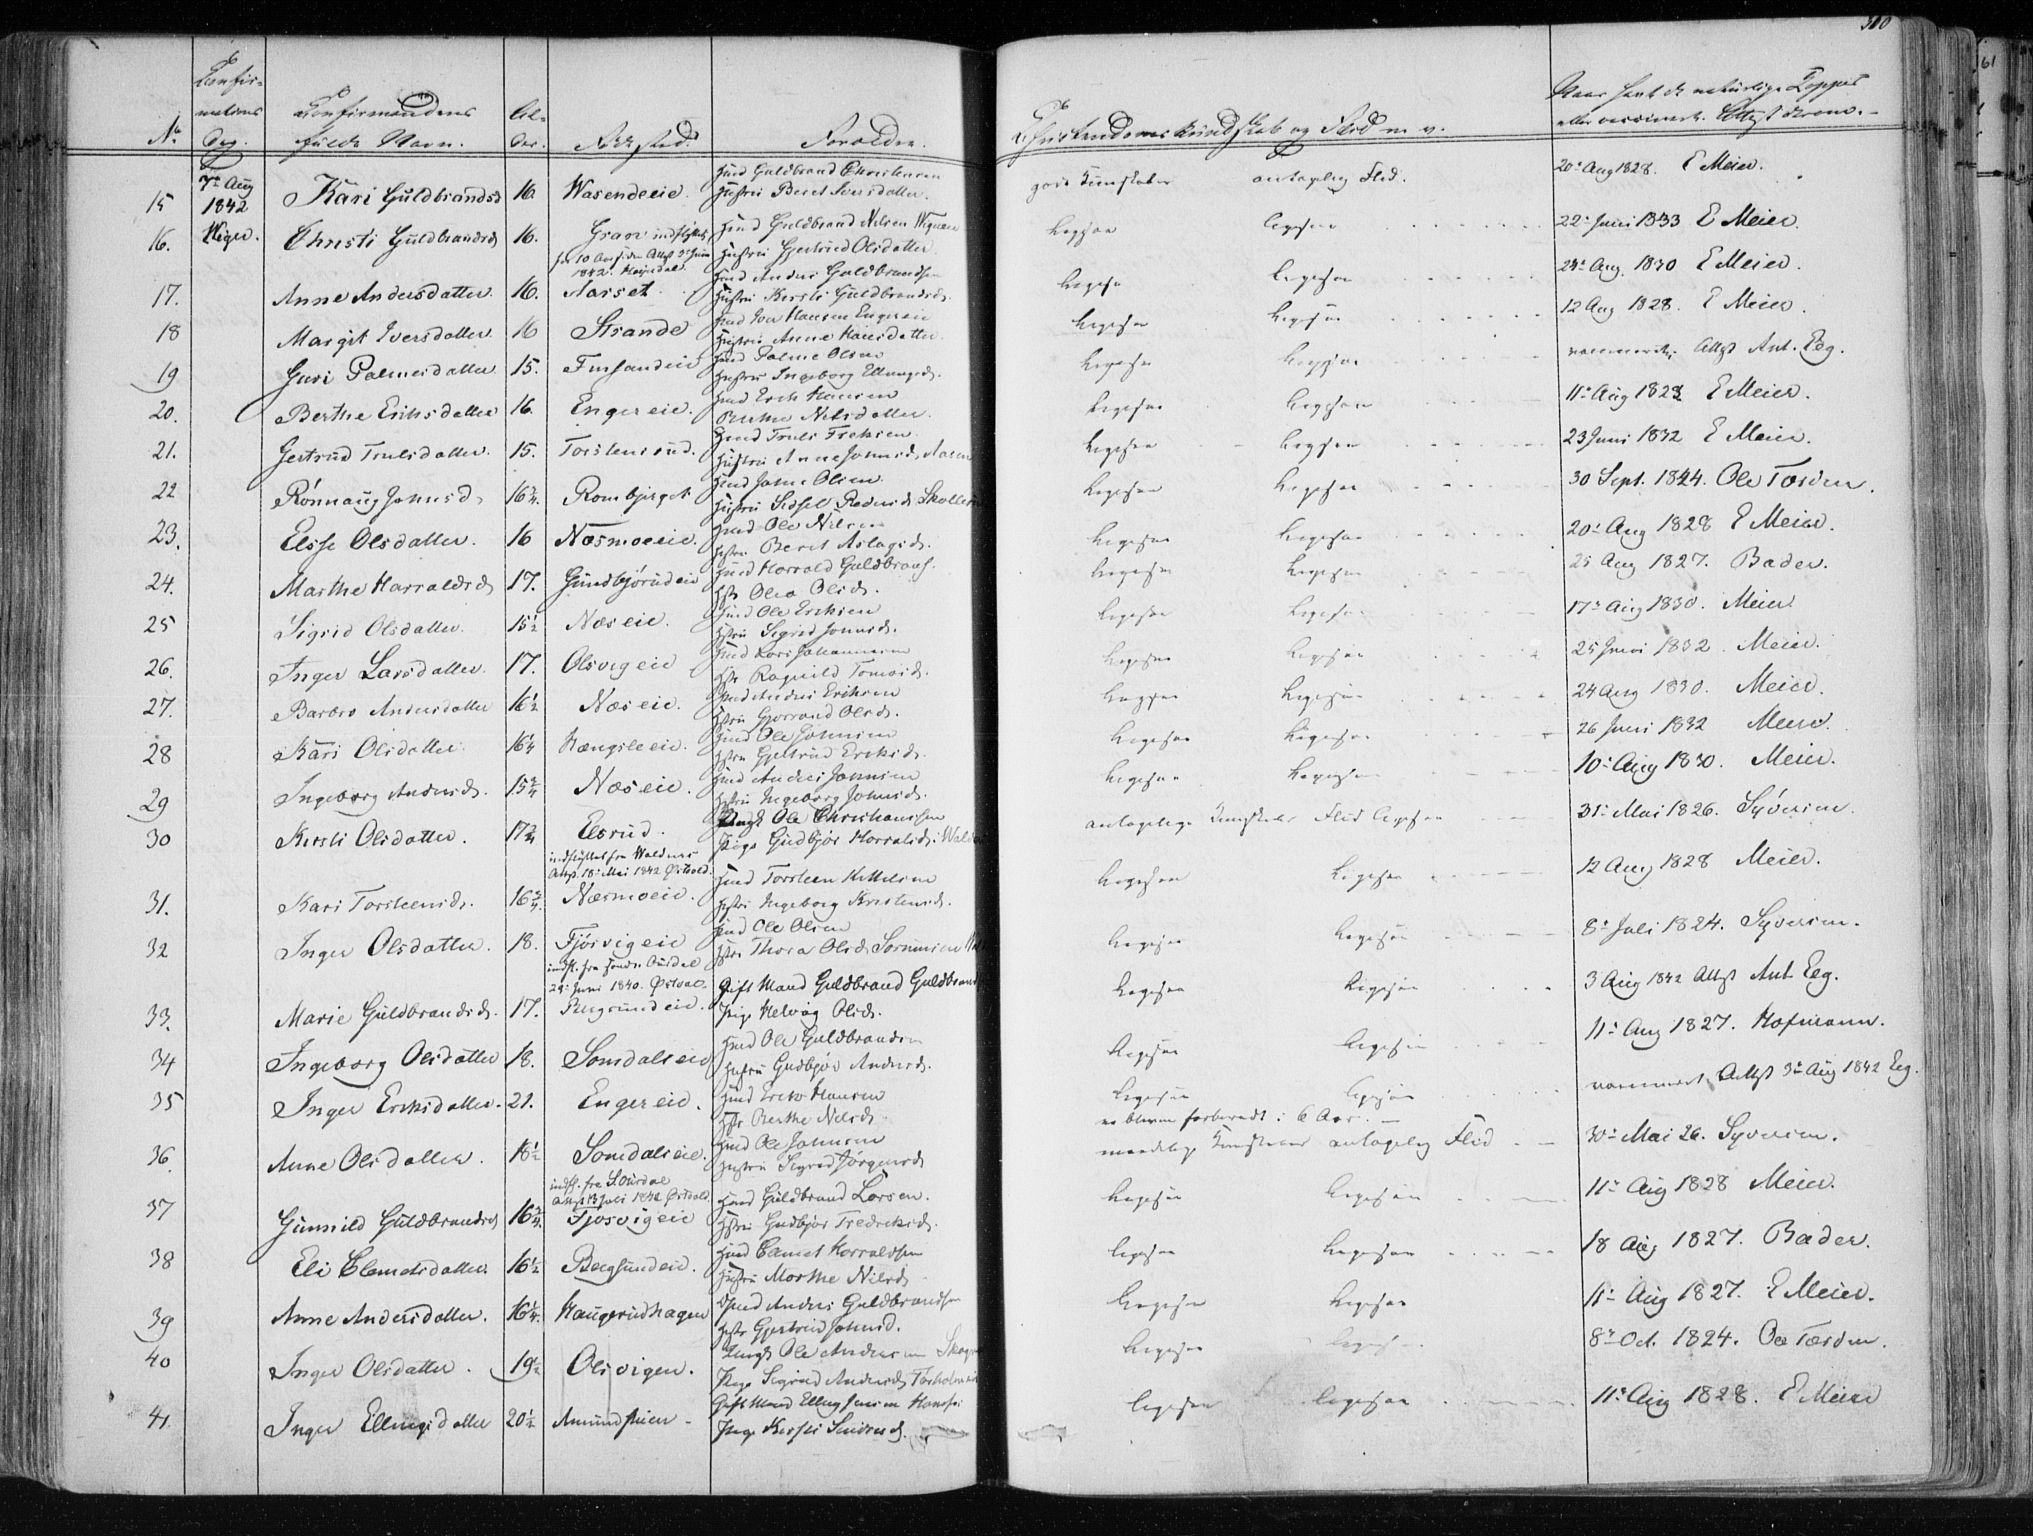 310
61
No
Confir-
mations
Dag.
Confirmandens
fulde Navn.
Al-
der.
Forældre.
Christendomskundskab og Flid m. v.
Naar havt de naturlige Kopper
eller vaccineret. Attest derom.
15 7de Aug 1842 Kari Guldbrandsd 16. Wasendeeie. Gmd Guldbrand Christensen
Hustru Beret Iversdatter. gode Kundskaber antagelig Flid. 20de Aug 1828. E Meier.
16. Christi Guldbrandsd 16. Grav Gmd Guldbrand Nilsen
Hustru Gjertrud Olsdatter ligesaa ligesaa 22de Juni 1833 E Meier.
17. Anne Andersdatter. 16. Aarset Gmd Anders Guldbrandsen
Hustru Kersti Guldbrandsd. ligesaa ligesaa 24de Aug. 1830 E Meier.
18 Margit Iversdatter. 16 Strande Gmd Iver Hansen Engereie
Hustru Anne Hansdatter. ligesaa ligesaa 12 Aug 1828. E Meier.
19 Guri Palmesdatter 15. Finsandeie Gmd Palme Olsen
Hustru Ingeborg Ellingsd. ligesaa ligesaa vaccineret. Attest Ant. Eeg.
20. Berthe Eriksdatter 16. Engereie. Gmd Erik Hansen
Berthe Nilsdatter. ligesaa ligesaa 11te Aug 1828 E Meier.
21. Gertrud Trulsdatter. 15. Torstensrud. Gmd Truls
Hustru Anne Johnsd. ligesaa ligesaa 23 Juni 1832 E Meier.
22 Rönnaug Johnsd. 16 3/4. Rombjerget Gmd John Olsen
Hustru Sidsel ligesaa ligesaa 30 Sept. 1824. Ole
23. Elsse Olsdatter. 16 Næsmoeeie. Gmd Ole Nilsen
Hustru Beret Aslagsd. ligesaa ligesaa 20de Aug 1828 E Meier.
24. Marthe Harraldsd 17. Gundbjörudeie Gmd Harrald Guldbrands.
Hstr Olea Olsd. ligesaa ligesaa 25 Aug 1827. Bader.
25 Sigrid Olsdatter. 15 1/2 Næseie. Gmd Ole Eriksen
Hstru Sigrid Jonsd. ligesaa ligesaa 17de Aug 1830. Meier.
26. Inger Larsdatter. 17. Olsvigeie Gmd Lars Johannesen
Hstr Ragnild Tomasd. ligesaa ligesaa 25 Juni 1832. Meier.
27. Barbro Andersdatter 16 1/2 Næseie. Gmd Anders Eriksen
Hstru Gjørrand Olsd. ligesaa ligesaa 24 Aug 1830. Meier.
28 Kari Olsdatter. 16 1/4 Hængsleeie. Gmd Ole Johnsen
Hstru Gjertrud Eriksd. ligesaa ligesaa 26 Juni 1832 Meier.
29 Ingeborg Andersd. 15 3/4 Næseie. Gmd Anders Johnsen
Hustru Ingeborg Johnsd. ligesaa ligesaa 10de Aug 1830. Meier.
30 Kersti Olsdatter. 17 3/4 Elsrud. Ungk Ole Christiansen
Pige Gudbjör Harraldsd. antagelige Kundskaber Flid ligesaa 31te Mai 1826. Syversen.
indflyttet fra Walders
Attest 18de Mai 1842 Østvold.
31. Kari Torsteensd. 16 3/4. Næsmoeeie. Gmd Torsteen Kittelsen
Hustru Ingeborg Kristensd. ligesaa ligesaa 12 Aug 1828 Meier.
32 Inger Olsdatter. 18. Fjösvigeie Gmd Ole Olsen
Hstr Thora Olsd. ligesaa ligesaa 8de Juli 1824. Syversen.
indfl. fra Søndr. Aurdal
24de Juni 1840. Østvold.
33. Marie Guldbrandsd. 17. Bergsundeie. Gift Mand Guldbrand Guldbrands
Pige Helvög Olsd. ligesaa ligesaa 3 Aug 1842 Attest Ant. Eeg.
34 Ingeborg Olsdatter 18. Somdalseie Gmd Ole Guldbrandsen
Hustru Gudbjör Andersd. ligesaa ligesaa 11te Aug 1827. Hofmann.
35 Inger Eriksdatter. 21. Engereie. Gmd Erik Hansen
Hstr Berthe Nilsd. ligesaa ligesaa vaccineret. Attest 3de Aug 1842 Eeg.
er bleven forberedt i 6 Aar.
36. Anne Olsdatter. 18 1/2 Somdalseie. Gmd Ole Johnsen
Hustru Sigrid Jörgensd maadelige Kundskaber antagelig Flid 30te Mai 26. Syversen.
indfl. fra S. Aurdal
Attest 13 Juli 1842 Østvold.
37 Gunnild Guldbrandsd 16 3/4. Fjösvigeie Gmd Guldbrand Larsen.
Hstru Gudbjör Fredriksd. ligesaa ligesaa 11te Aug 1828 Meier.
38 Eli Clemetsdatter. 16 1/2 Bergsundeie. Gmd Clemet Harraldsen
Hustru Marthe Nilsd. ligesaa ligesaa 18 Aug 1827. Bader.
39 Anne Andersdatter. 16 1/4. Haugerudhagen Gmd Anders Guldbrandsen
Hustr Gjertrud Johnsd. ligesaa ligesaa 11te Aug 1827. E Meier.
40 Inger Olsdatter. 19 1/2 Olsvigen. Ungk Ole Andersen
Pige Sigrid Andersd. ligesaa ligesaa 8de Oct. 1824. Ole
41. Inger Ellingsdatter 20 1/2 Gift Mand Elling
Pige Kersti ligesaa ligesaa 11te Aug 1828. E Meier